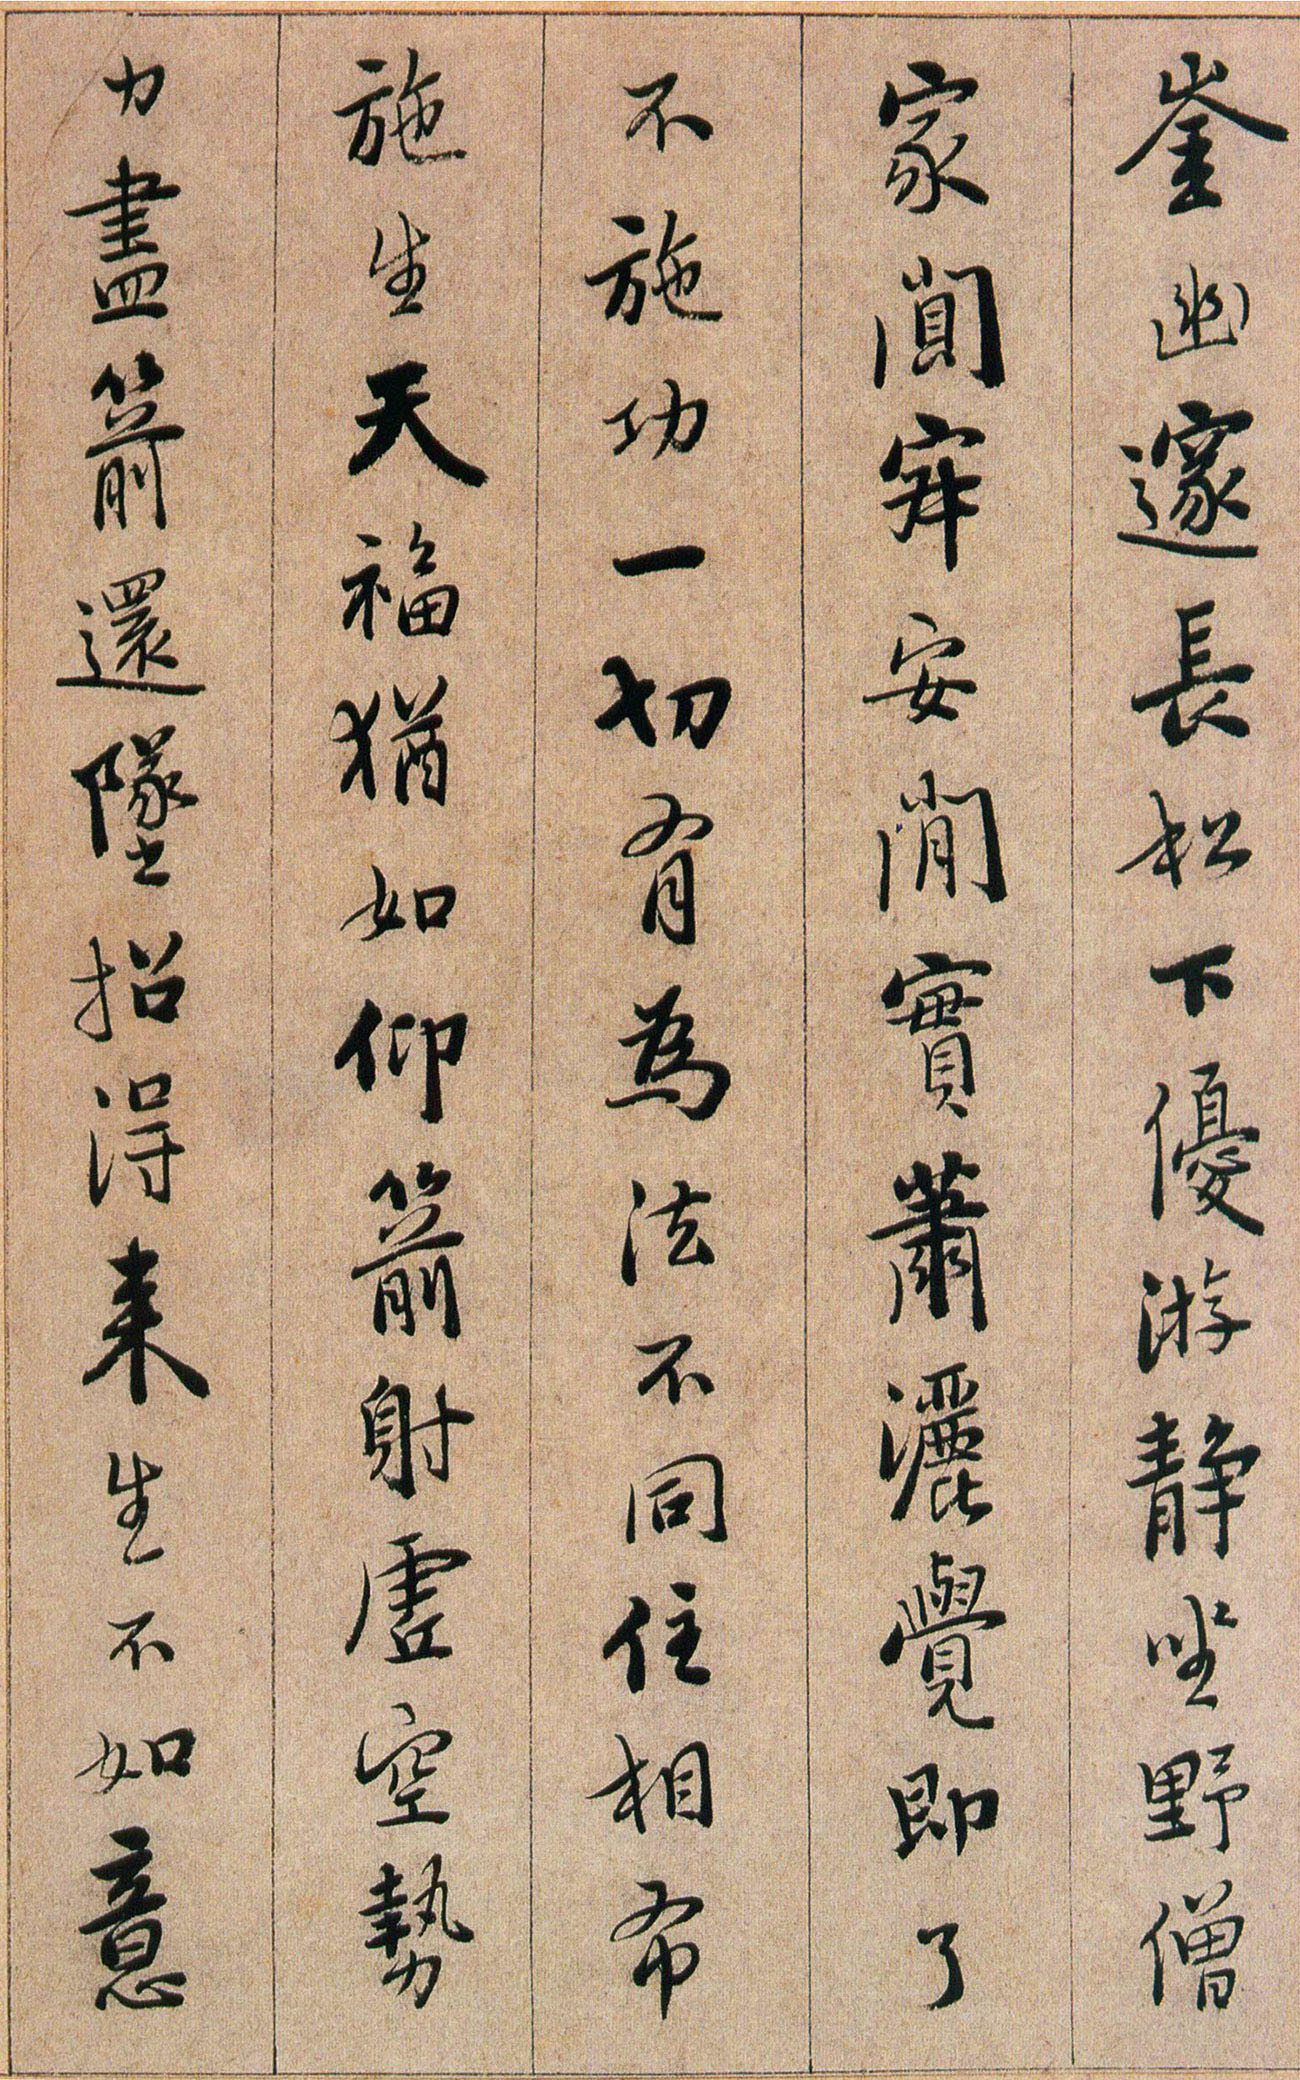 崟幽邃長松下優游靜坐野僧
家闃㝧安閑實蕭灑覺即了
不施功一切有為法不同住相布
施生天福猶如仰箭射虛空勢
力盡箭還墜招得來生不如意